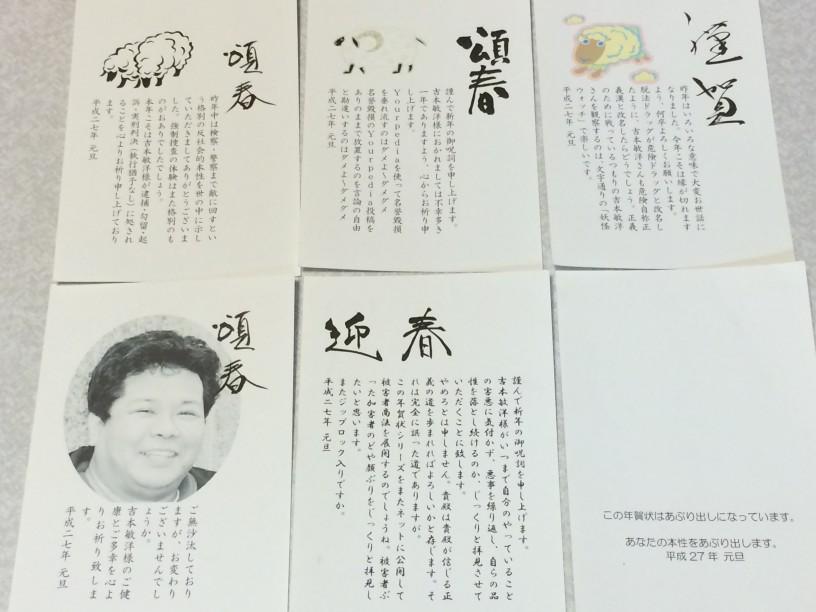 頌春
昨年中は検察・警察まで敵に回すとい
う格別の反社会的本性を世の中に示し
ていただきましてありがとうございま
した。強制捜査の体験はまた格別のも
のがおありでしたでしょう。
本年こそは吉本敏洋様が逮捕・勾留・起
訴・実刑判決(執行猶予なし)に処され
ることを心よりお祈り申し上げており
ます。
平成二七年 元旦
頌春
謹んで新年の御呪詞を申し上げます。
吉本敏洋様におかれましては不幸多き
一年でありますよう、心からお祈り申
し上げます。
Yourpediaを使って名誉毀損
を垂れ流すのはダメよ〜ダメダメ
名誉毀損のYourpedia投稿を
ありのままで放置するのを言論の自由
と勘違いするのはダメよ〜ダメダメ
平成二七年 元旦
謹賀
昨年はいろいろな意味で大変お世話に
なりました。今年こそは縁が切れます
よう、何卒よろしくお願いします。
脱法ドラッグが危険ドラッグと改名し
たように、吉本敏洋さんも危険自称正
義漢と改名したらどうでしょう。正義
のために戦っているつもりの吉本敏洋
さんを観察するのは、文字通りの「妖怪
ウォッチ」で楽しいです。
平成二七年 元旦
頌春
ご無沙汰しており
ますが、お変わり
ございませんでし
ょうか。
吉本敏洋様のご健
康とご多幸を心よ
りお祈り致しま
す。
平成二七年 元旦
迎春
謹んで新年の御呪詞を申し上げます。
吉本敏洋様がいつまで自分のやっていること
の害悪に気付かず、悪事を繰り返し、自らの品
性を落とし続けるのか、じっくりと拝見させて
いただくことに致します。
やめろとは申しません。貴殿は貴殿が信じる正
義の道を歩まれればよろしいかと存じます。そ
れは完全に誤った道でありますが。
この年賀状シリーズをまたネットに公開して
被害者商法を展開するのでしょうね。被害者ぶ
った加害者のどや顔ぶりをじっくりと拝見し
たいと思います。
またジップロック入りですか。
平成二七年 元旦
この年賀状はあぶり出しになっています。
あなたの本性をあぶり出します。
平成27年 元旦